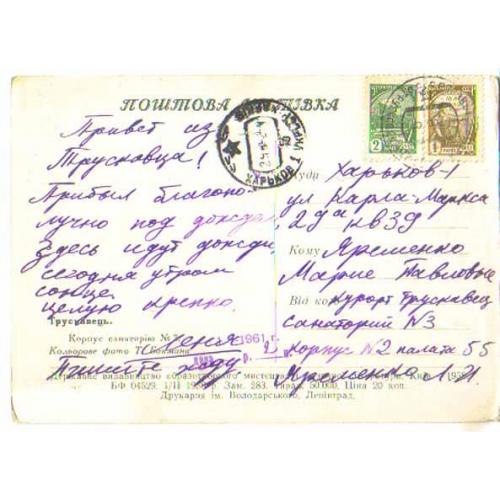 ПОШТОВА КАРТКА
Привет из
Трускавца!
Прибыл благопо-
лучно под дождь
Здесь идут дожди,
сегодня утром
солнце.
Целую крепко.
Женя
Пишите жду
Трускавець.
Корпус санаторію №
Кольорове фото Т.
Державне видавництво образотворчого мистецтва
БФ 04529. 1959 р. Зам. 283. Тираж 50.000. Ціна 20 коп.
Друкарня ім. Володарського, Ленінград.
ХАРЬКОВ
2
1
1961 г.
Куди Харьков-1
ул Карла-Маркса
29а кв 39
Кому Яременко
Марие Павловне
Від кого курорт Трускавец
санаторий №3
корпус №2 палата 55
Яременко